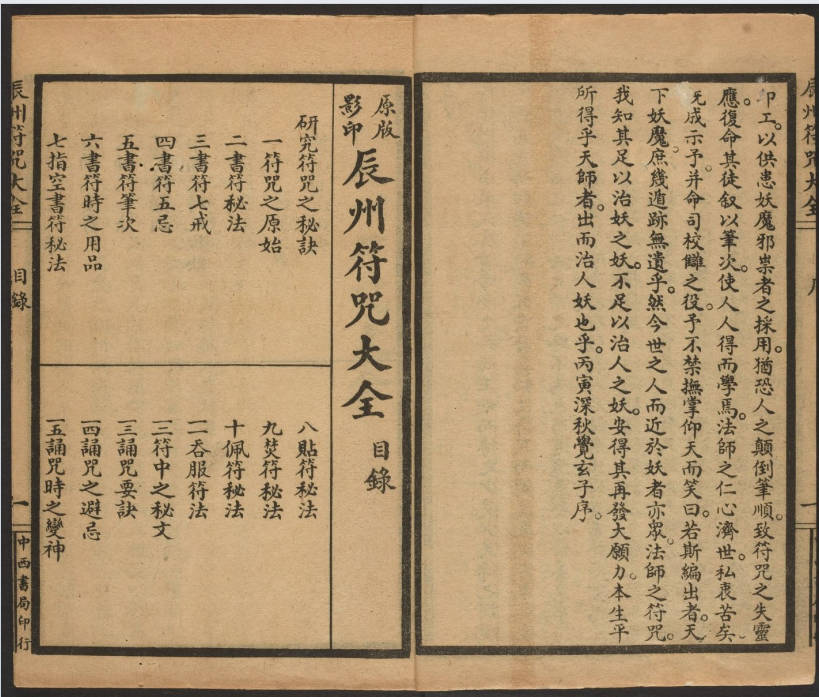 辰州符咒大全
印工。以供患妖魔邪祟者之採用。猶恐人之顛倒筆順。致符咒之失靈
應。復命其徒叙以筆次。使人人得而學焉。法師之仁心濟世。私衷苦矣。
旣成示予。并命司校讎之役。予不禁撫掌仰天而笑曰。若斯編出者。天
下妖魔。庶幾遁跡無遺乎。然今世之人而近於妖者亦衆。法師之符咒。
我知其足以治妖之妖。不足以治人之妖。安得其再發大願力。本生平
所得乎天師者。出而治人妖也乎。丙寅深秋覺玄子序。
原版
影印
辰州符咒大全
目錄
研究符咒之秘訣
一符咒之原始
二書符秘法
三書符七戒
四書符五忌
五書符筆次
六書符時之用品
七指空書符秘法
八貼符秘法
九焚符秘法
十佩符秘法
一一吞服符法
一二符中之秘文
一三誦咒要訣
一四誦咒之避忌
一五誦咒時之變神
辰州符咒大全
目錄
一
中西書局印行